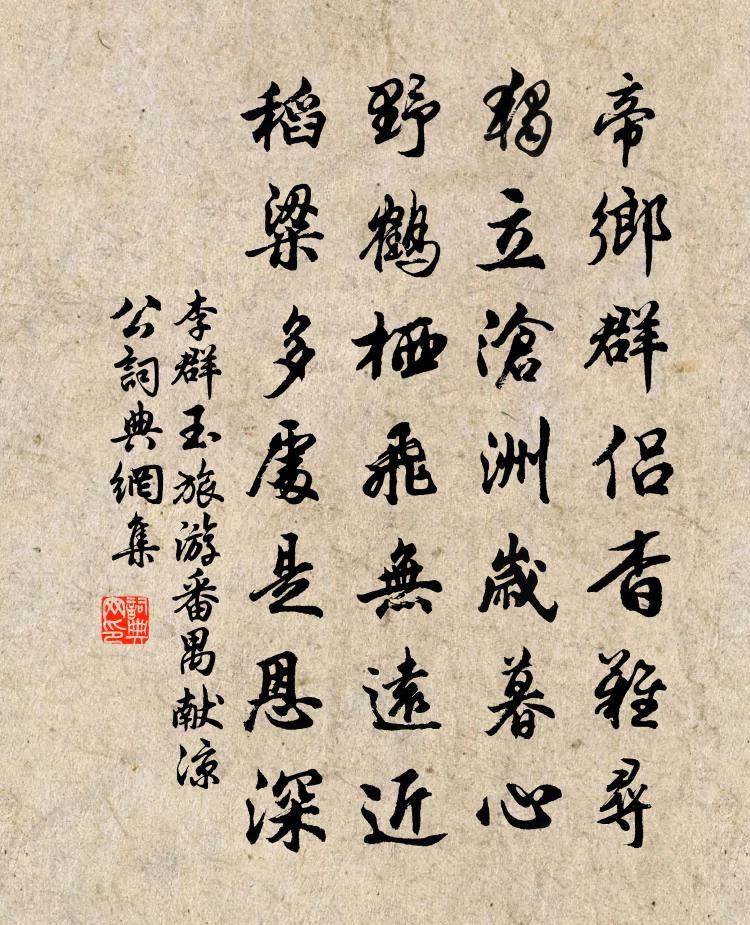 帝鄉群侶杳難尋
獨立滄洲歲暮心
野鶴栖飛無遠近
稻粱多處是恩深
李群玉旅游番禺献凉
公詞典網集
詞典网印